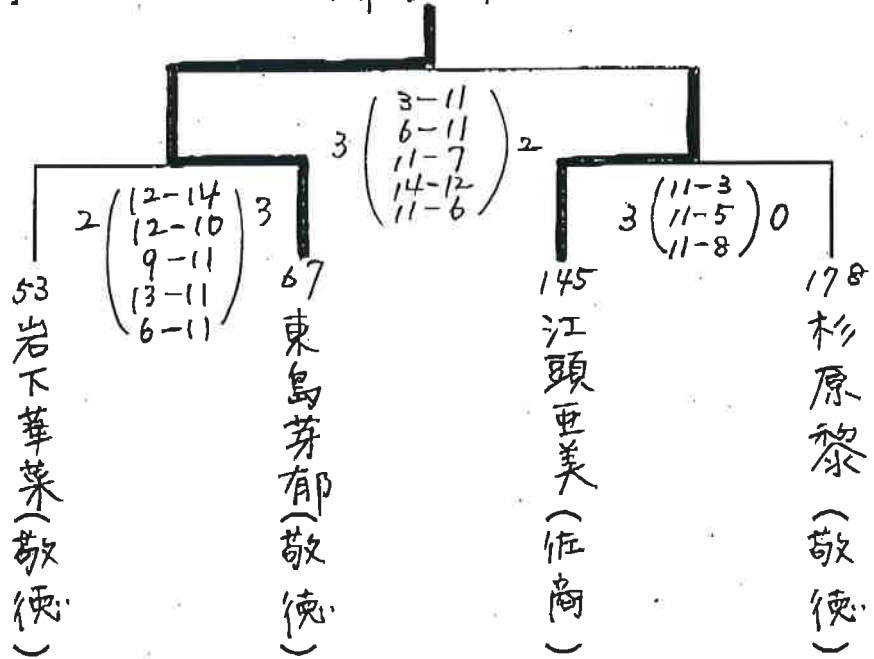 3 ( 3-11 6-11 11-7 14-12 11-6 ) 2
2 ( 12-14 12-10 9-11 13-11 6-11 ) 3
3 ( 11-3 11-5 11-8 ) 0
53 岩下華菜(敬徳)
67 東島芽郁(敬徳)
145 江頭亜美(佐商)
178 杉原黎(敬徳)